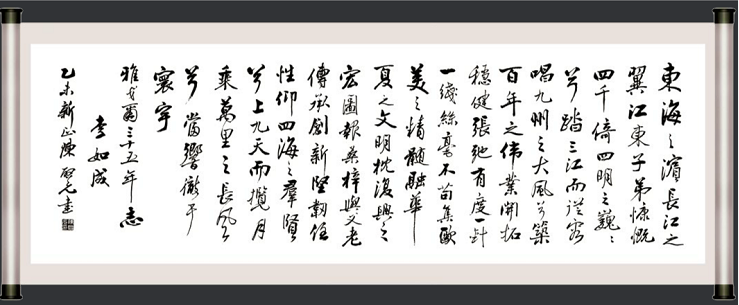 東海之濱長江之
翼江東子弟慷慨
四千倚四明之巍巍
兮踏三江而從容
唱九州之大風兮築
百年之偉業開拓
穩健張弛有度針
一綫絲毫不苟集歐
美之精髓融華
夏之文明枕復興之
宏圖報桑梓與父老
傳承創新堅韌任
性仰四海之群賢
兮上九天而攬月
乘萬里之長風
兮當響徹乎
寰宇
雅戈爾三十五年志
李如成
乙未新正陳書